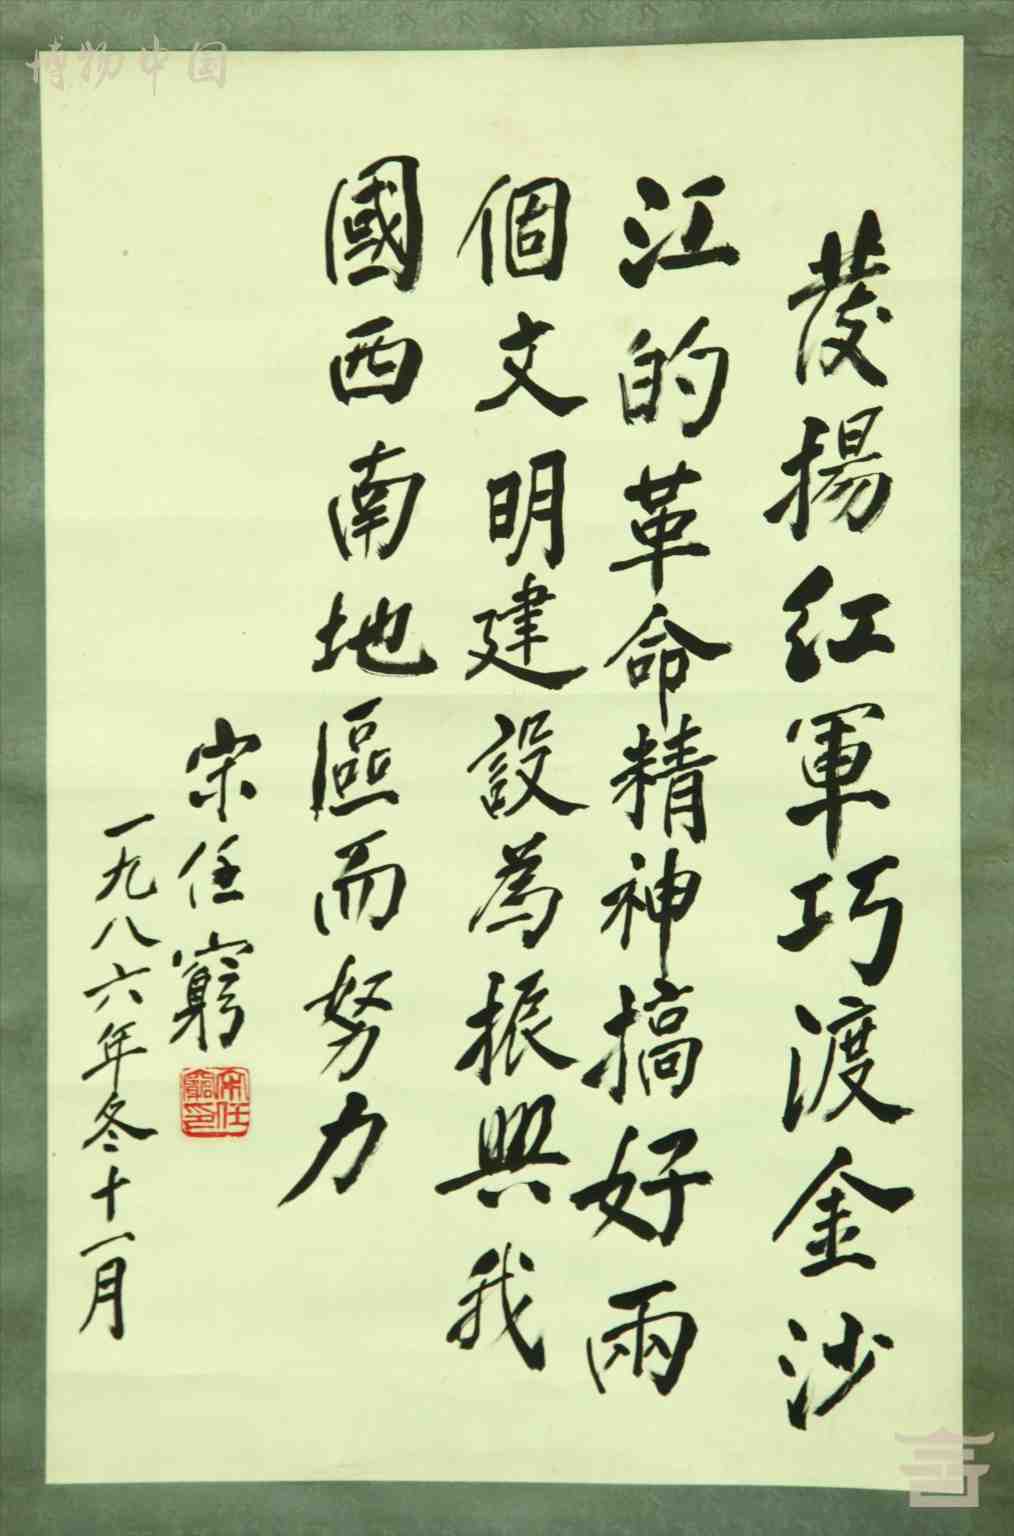 發揚红軍巧渡金沙
江的革命精神搞好兩
個文明建設為振興我
國西南地區而努力
宋任窮
一九八六年冬十一月
宋任窮印
博物中国